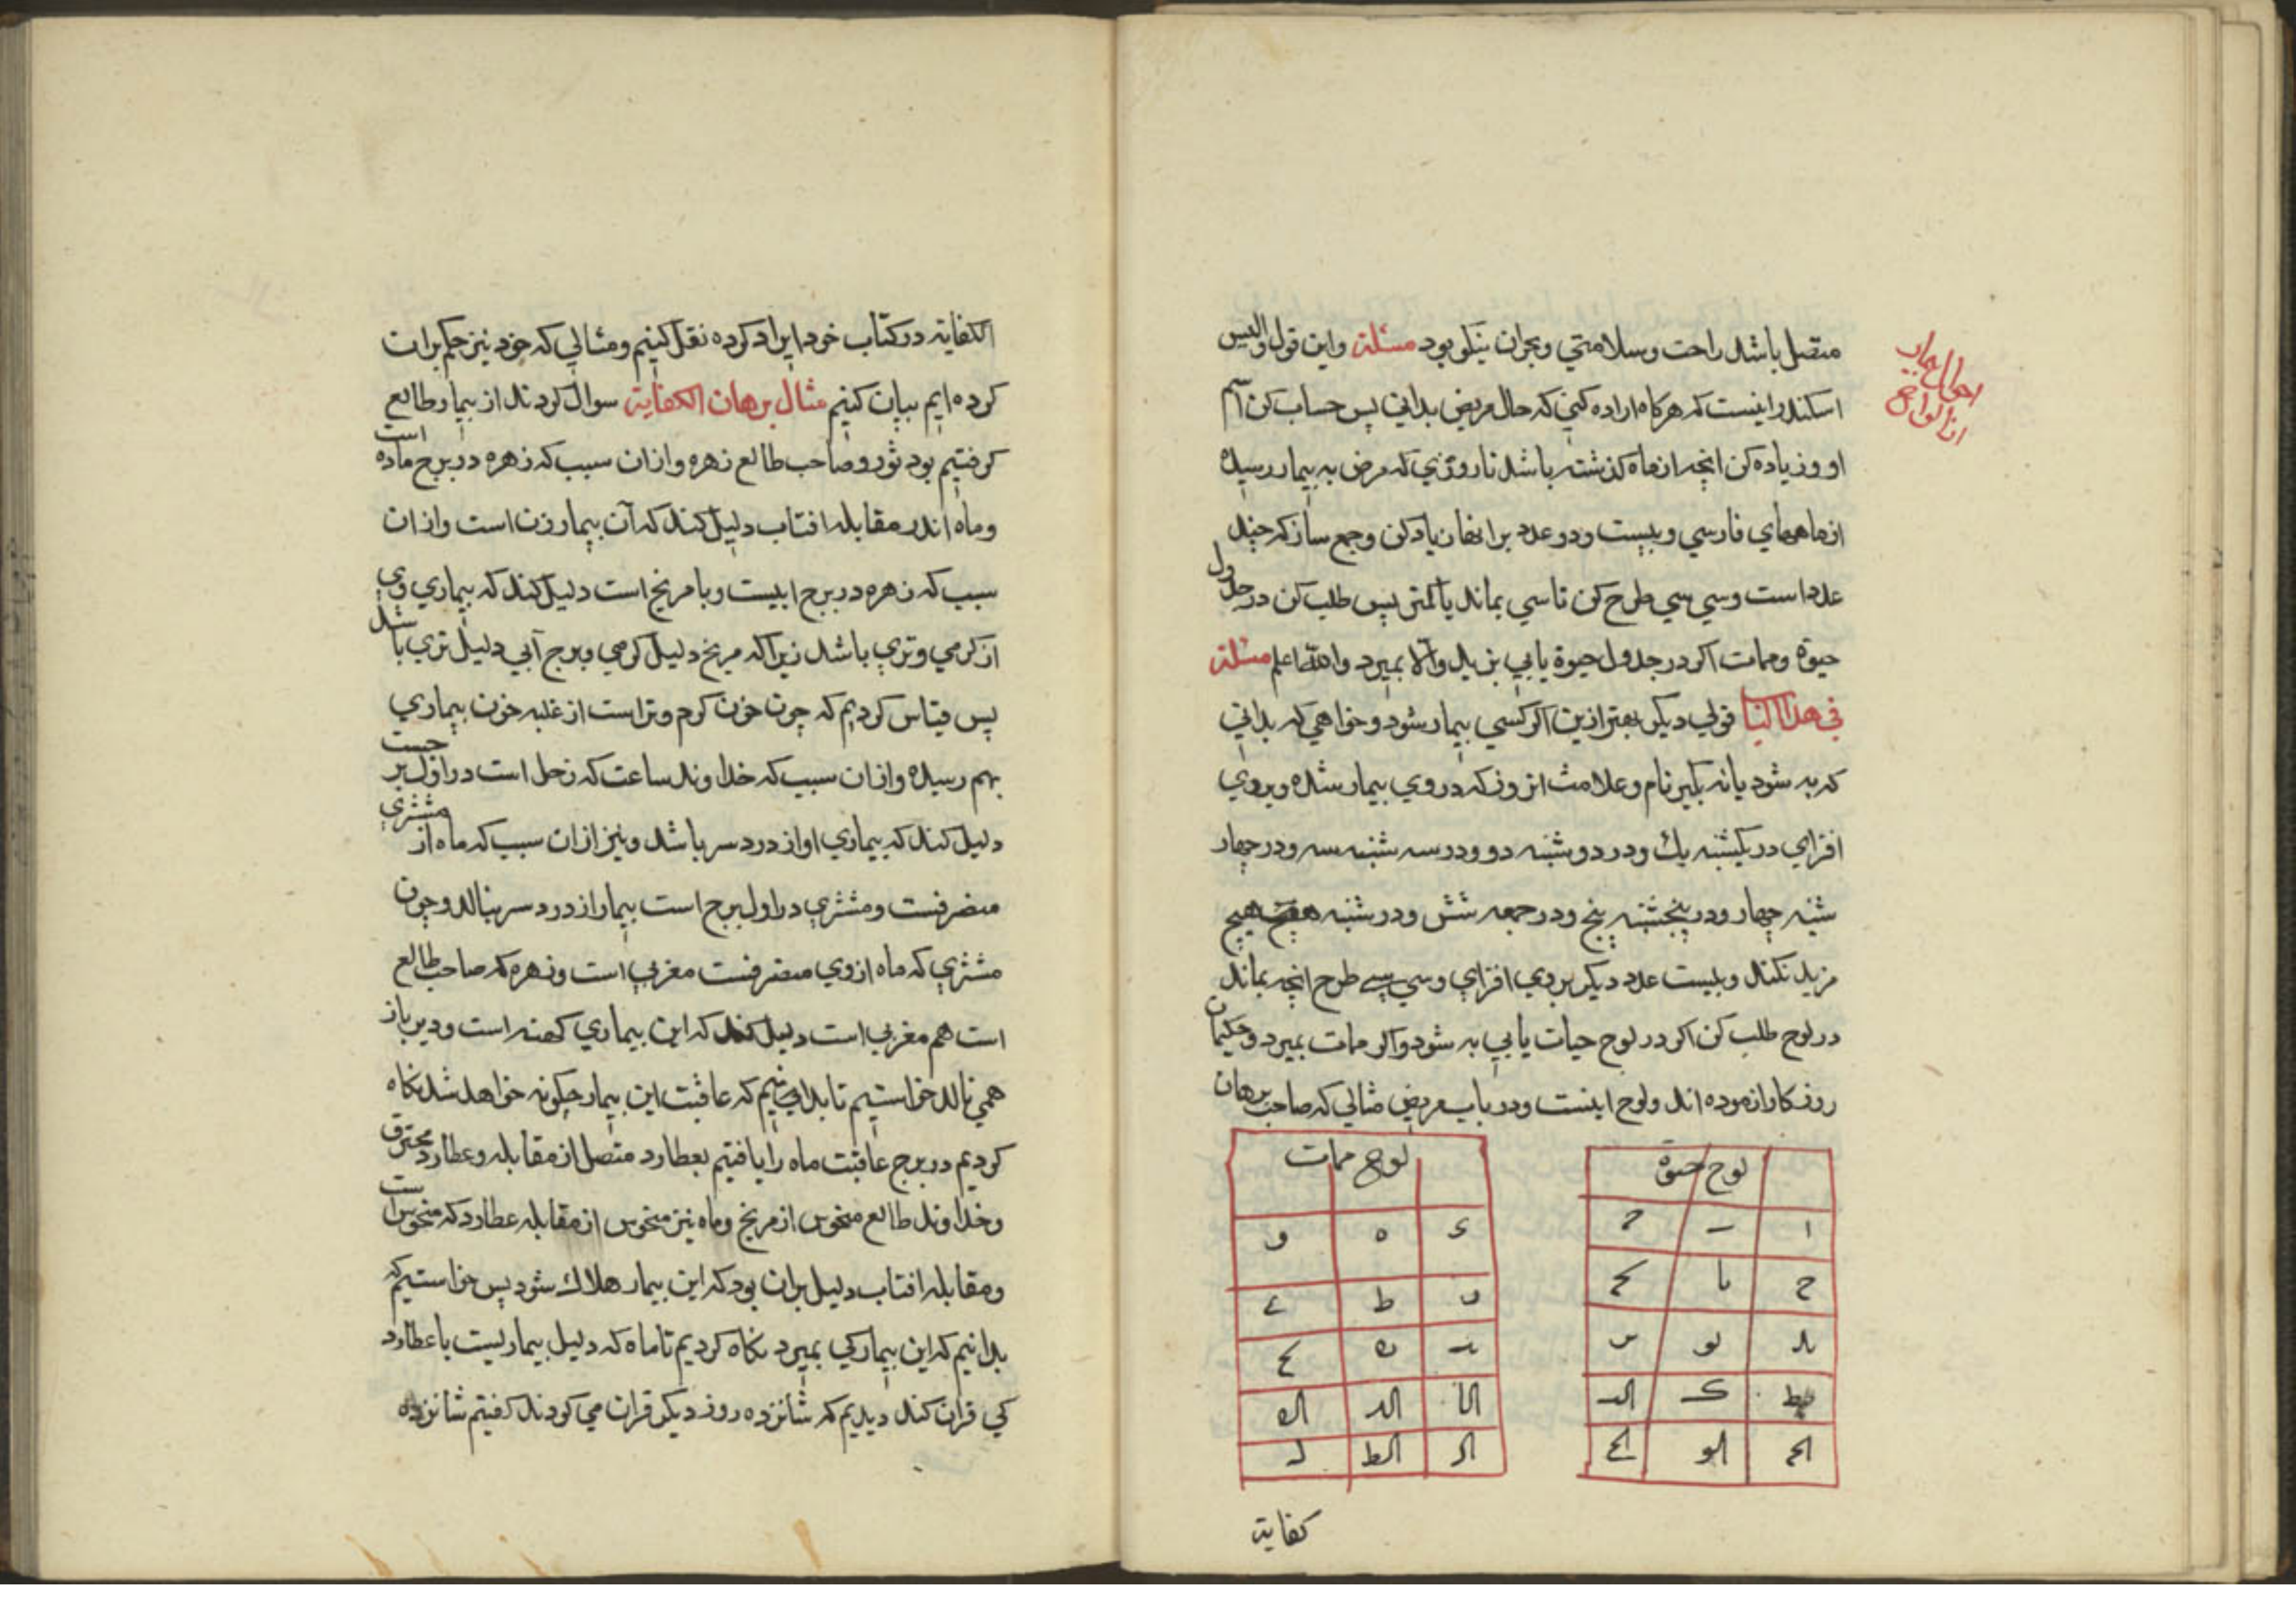 متصل باشد راحت وسلامتي وبحران نيكو بود مسئلة واين قول واليس
اسكندر اينست كه هركاه اراده كني كه حال مريض بداني پس حساب كن اسم
او وزياده كن انچه از ماه كذشته باشد تا روزي كه مرض به بيمار رسيده
از ماههاي فارسي وبيست ودو عدد بر انها زياد كن وجمع ساز كه چند
عدد است وسي سي طرح كن تا سي بماند يا كمتر پس طلب كن در جدول
حيوة وممات اكر در جدول حيوة يابي بزيد والا بميرد والله اعلم مسئلة
في هذا الباب قولي ديكر بهتر ازين اكر كسي بيمار شود وخواهي كه بداني
كه به شود يا نه بكير نام وعلامت ان روز كه در وي بيمار شده وبر وي
افزاي در يكشنبه يك ودر دوشنبه دو ودر سه شنبه سه ودر چهار
شنبه چهار ودر پنجشنبه پنج ودر جمعه شش ودر شنبه هيچ
مزيد نكند وبيست عدد ديكر بر وي افزاي وسي سي طرح انچه بماند
در لوح طلب كن اكر در لوح حيات يابي به شود واكر ممات بميرد وحكيمان
روزكار ازموده اند ولوح اينست ودر باب مريض مثالي كه صاحب برهان
لوح حيوة
ا
ح يا
يد يو
يط ك
الو
لوح ممات
ه و
ط
الا الد اله
الر الط ل
كفاية
الكفاية در كتاب خود ايراد كرده نقل كنيم ومثالي كه خود نيز حكم بران
كرده ايم بيان كنيم مثال برهان الكفاية سوال كردند از بيمار طالع
كرفتيم بود ثور وصاحب طالع زهره وازان سبب كه زهره در برج ماده است
وماه اندر مقابله افتاب دليل كند كه آن بيمار زن است وازان
سبب كه زهره در برج ابيست وبا مريخ است دليل كند كه بيماري وي
از كرمي وتري باشد زيرا كه مريخ دليل كرمي وبرج آبي دليل تري باشد
پس قياس كرديم كه چون خون كرم وتر است از غلبه خون بيماري
بهم رسيده وازان سبب كه خداوند ساعت كه زحل است در اول برجست
دليل كند كه بيماري او از درد سر باشد ونيز ازان سبب كه ماه از مشتري
منصرفست ومشتري در اول برج است بيمار از درد سر بنالد وچون
مشتري كه ماه از وي منصرفست مغربي است وزهره كه صاحب طالع
است هم مغربي است دليل كند كه اين بيماري كهنه است ودير باز
همي نالد خواستيم تا بدانيم كه عاقبت اين بيمار چكونه خواهد شد نكاه
كرديم در برج عاقبت ماه را يافتيم بعطارد متصل از مقابله وعطارد محترق
وخداوند طالع منحوس از مريخ وماه نيز منحوس از مقابله عطارد كه منحوس است
ومقابله افتاب دليل بران بود كه اين بيمار هلاك شود پس خواستيم كه
بدانيم كه اين بيمار كي بميرد نكاه كرديم تا ماه كه دليل بيماريست با عطارد
كي قران كند ديديم كه شانزده روز ديكر قران مي كردند كفتيم شانزده